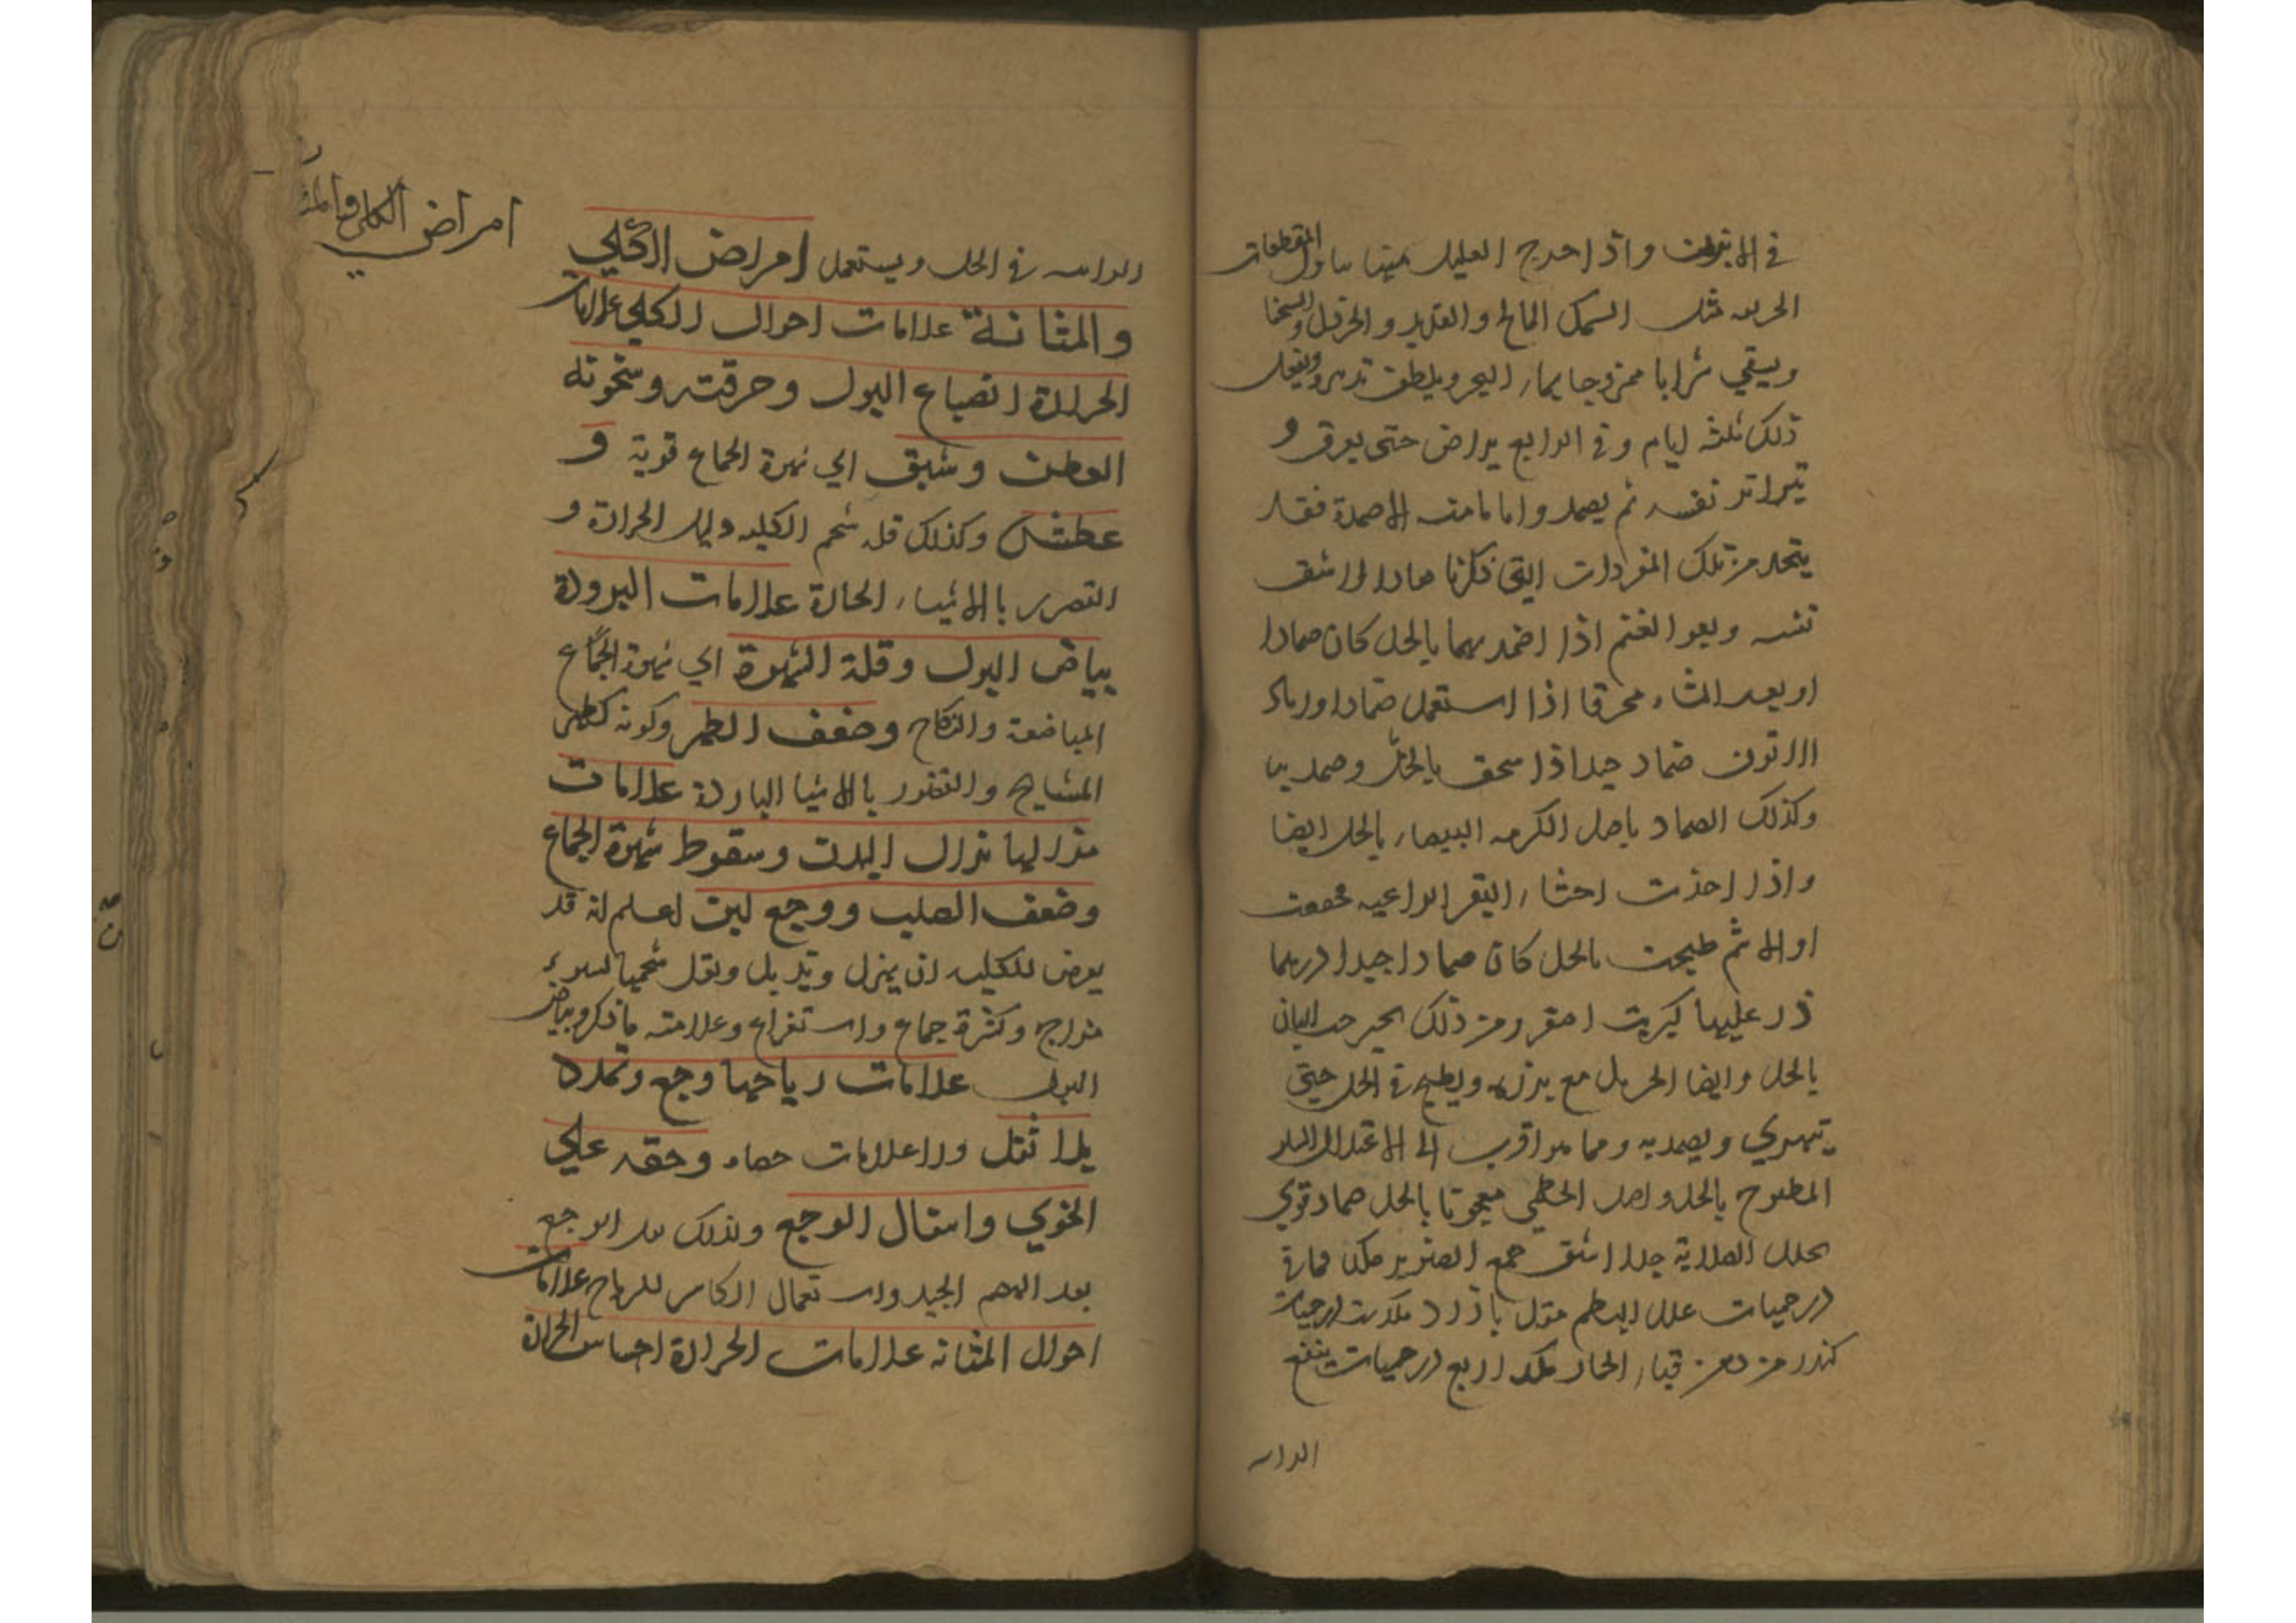 في الابزن واذا اخرج العليل منها يناول المقطعات
الحريفه مثل السمك المالح والقديد والخردل
ويسقي شرابا ممزوجا بماء البحر ويلطف تدبيره ويفعل
ذلك ثلثه ايام وفي الرابع يراض حتى يعرق و
يتواتر نفسه ثم يضمد واما مامنه الاضمدة فقد
يتخذ من تلك المفردات التي ذكرنا
وبعر الغنم اذا ضمد بهما بالخل كان ضمادا
او بعر الشاء محرقا اذا استعمل ضمادا او رماد
الاتون ضماد جيد اذا سحق بالخل وضمد به
وكذلك الضماد باصل الكرمه البيضاء بالخل ايضا
واذا اخذت احشاء البقر الراعيه مجففة
اولا ثم طبخت بالخل كان ضمادا جيدا وربما
ذر عليها كبريت اصفر ومن ذلك حب البان
بالخل وايضا الحرمل مع بزر ويطبخ في الخل حتى
يتهري ويضمد به ومما هو اقرب الي الاعتدال
المطبوخ بالخل واصل الخطمي معجونا بالخل ضماد قوي
يحلل الصلابة جدا اشق صمغ الصنوبر
درخميات علك البطم مقل بازرد درخميات
كندر من دهن قثاء الحمار اربع درخميات ينقع
الراسه
الراسه في الخل ويستعمل امراض الكلي
والمثانة علامات احوال الكلي علامات
الحرارة انصباغ البول وحرقته وسخونته
العطش وشبق اي شهوة الجماع قوية و
عطش وكذلك قلة شحم الكليه دليل الحرارة و
التضرر بالاشياء الحارة علامات البرودة
بياض البول وقلة الشهوة اي شهوة الجماع
المباضعة والنكاح وضعف الظهر وكونه كظهر
المشايخ والتضرر بالاشيا الباردة علامات
هزالها هزال البدن وسقوط شهوة الجماع
وضعف الصلب ووجع لين اعلم انه قد
يعرض للكليه ان يهزل وتذبل ويقل شحمها لسوء
مزاج وكثرة جماع واستفراغ وعلامته ما ذكر وبياض
البول علامات رياحها وجع وتمدد
بلا ثقل ولا علامات حصاه وخفه علي
الخوي وانتقال الوجع ولذلك يقل الوجع
بعد الهضم الجيد واستعمال الكاسر للرياح علامات
احوال المثانه علامات الحرارة احساس الحرارة
امراض الكلي والمثـ